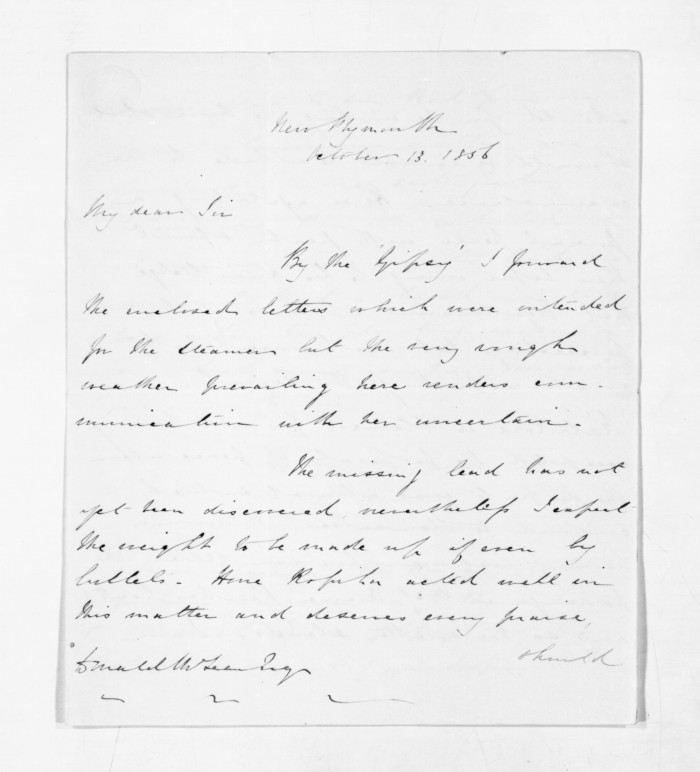 New Plymouth
October 13. 1856
My dear Sir
By the 'Gipsey' I forward
the enclosed letters which were intended
for the steamer but the very rough
weather prevailing here renders com-
munication with her uncertain.
The missing lead has not
yet been discovered, nevertheless I expect
the weight to be made up if even by
bullets. Hone Ropiha acted well in
this matter and deserves every praise,
Donald McLean Esq
should